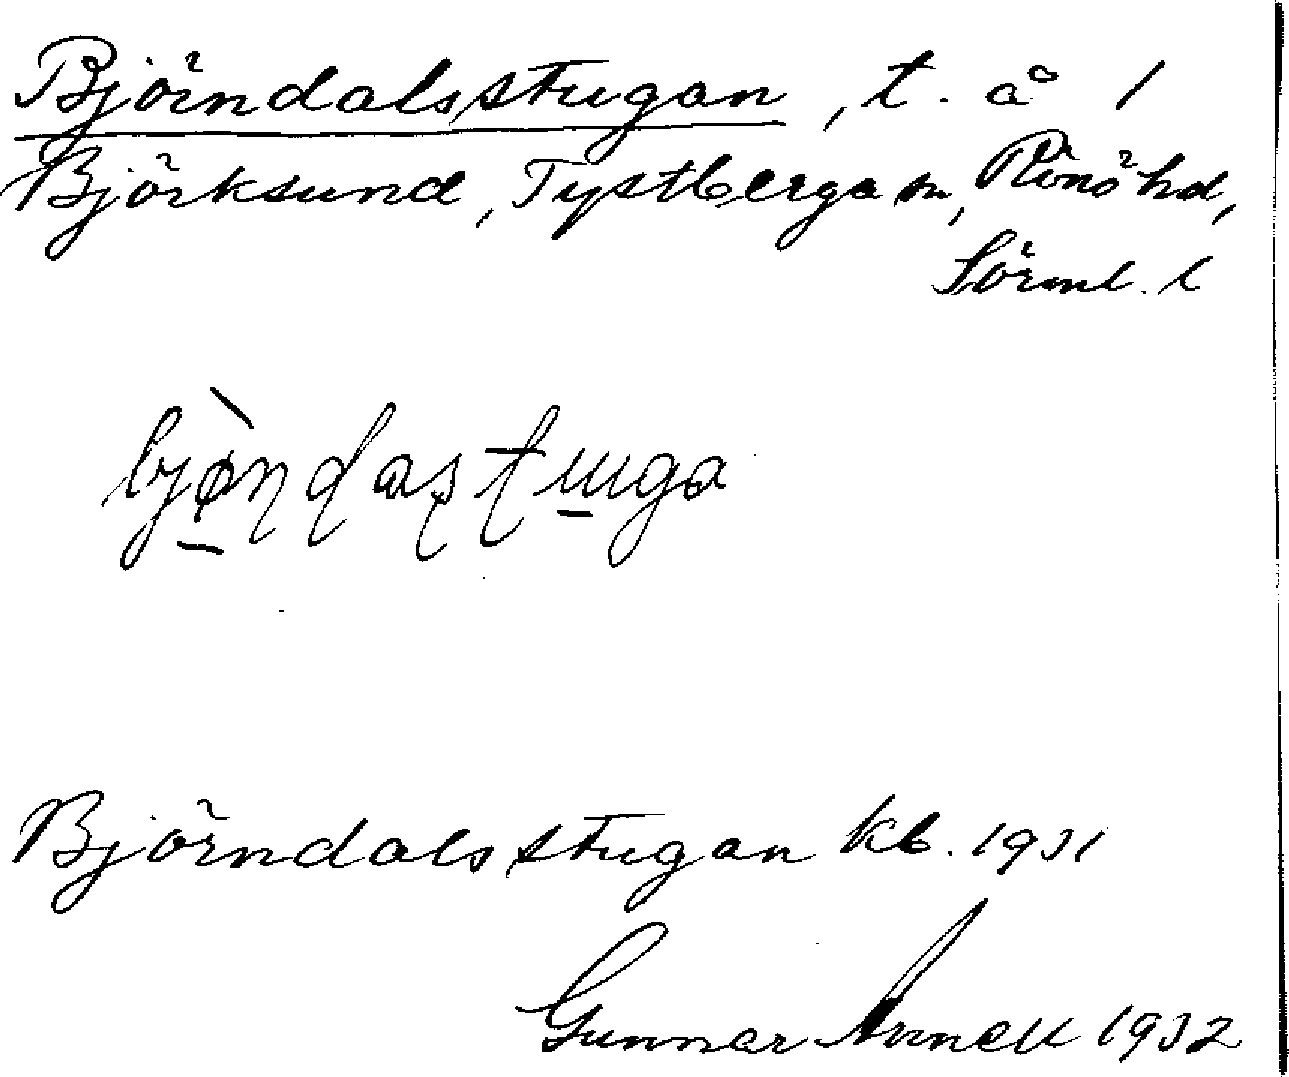 Björndalsstugan, t. å 1
Björksund, Tystberga sn, Rönö hd,
Sörml. l
bjø̀ṇḍaṣṭuga
Björndalsstugan kb. 1931
Gunnar 1932